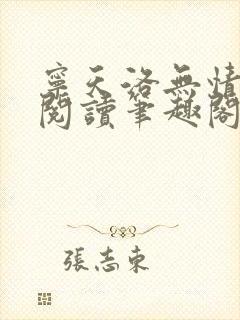 寧天洛無情
閱讀筆趣閣
張志東